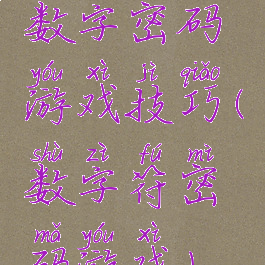 数字密码
yóu xì jì qiǎo
游戏技巧(
shù zì fú mì
数字符密
mǎ yóu xì
码游戏)